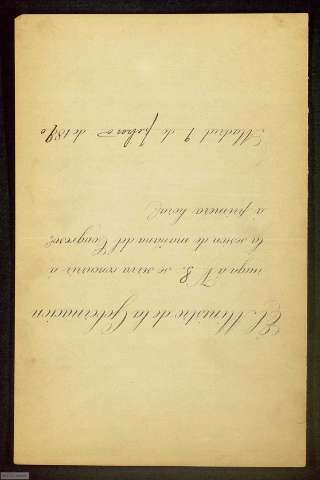 El Ministro de la Gobernacion
ruega á V. S. se sirva concurrir á
la sesion de mañana del Congreso
á primera hora.
Madrid 9 de febrero de 1890